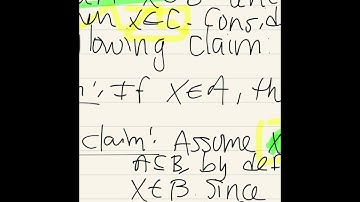 x∈C. Consid
lowing Claim:
If x∈A, th
claim: Assume x
A⊆B, by def
x∈B since